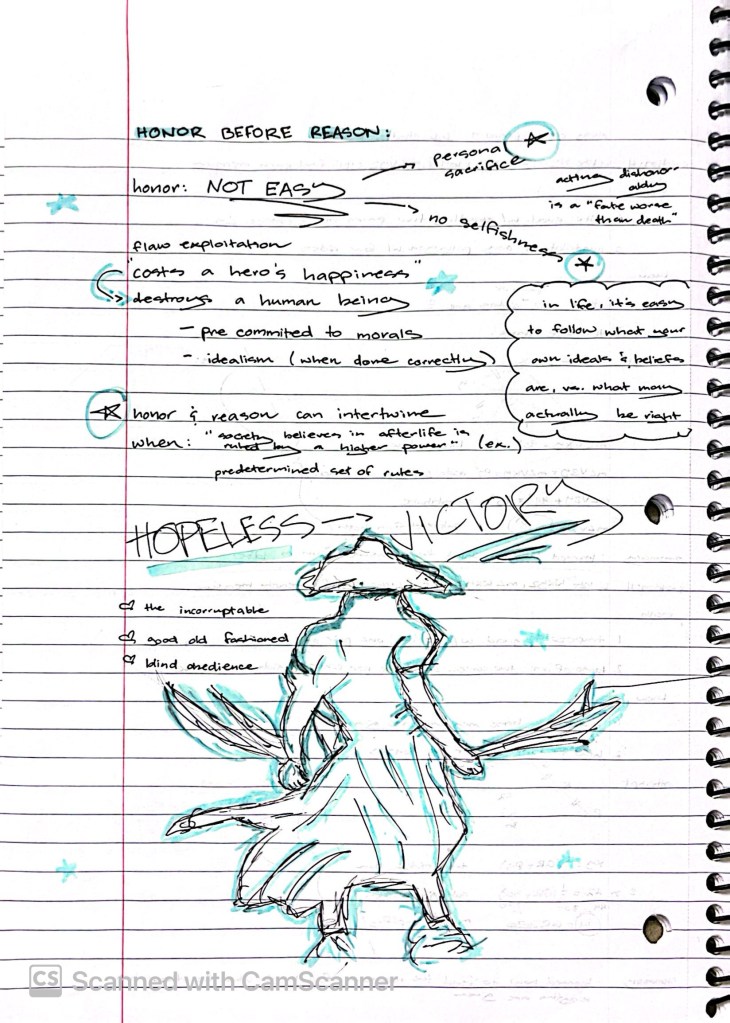 HONOR BEFORE REASON:
honor: NOT EASY
→ personal sacrifice
→ no selfishness
acting dishonor-
ably
is a "fate worse
than death"
flaw exploitation
"costs a hero's happiness"
destroys a human being
- pre commited to morals
- idealism (when done correctly)
in life, it's easy
to follow what your
own ideals & beliefs
are, vs. what may
actually be right
honor & reason can intertwine
when: "society believes in afterlife is
ruled by a higher power" (ex.)
predetermined set of rules
HOPELESS → VICTORY
the incorruptable
good old fashioned
blind obedience
CS Scanned with CamScanner